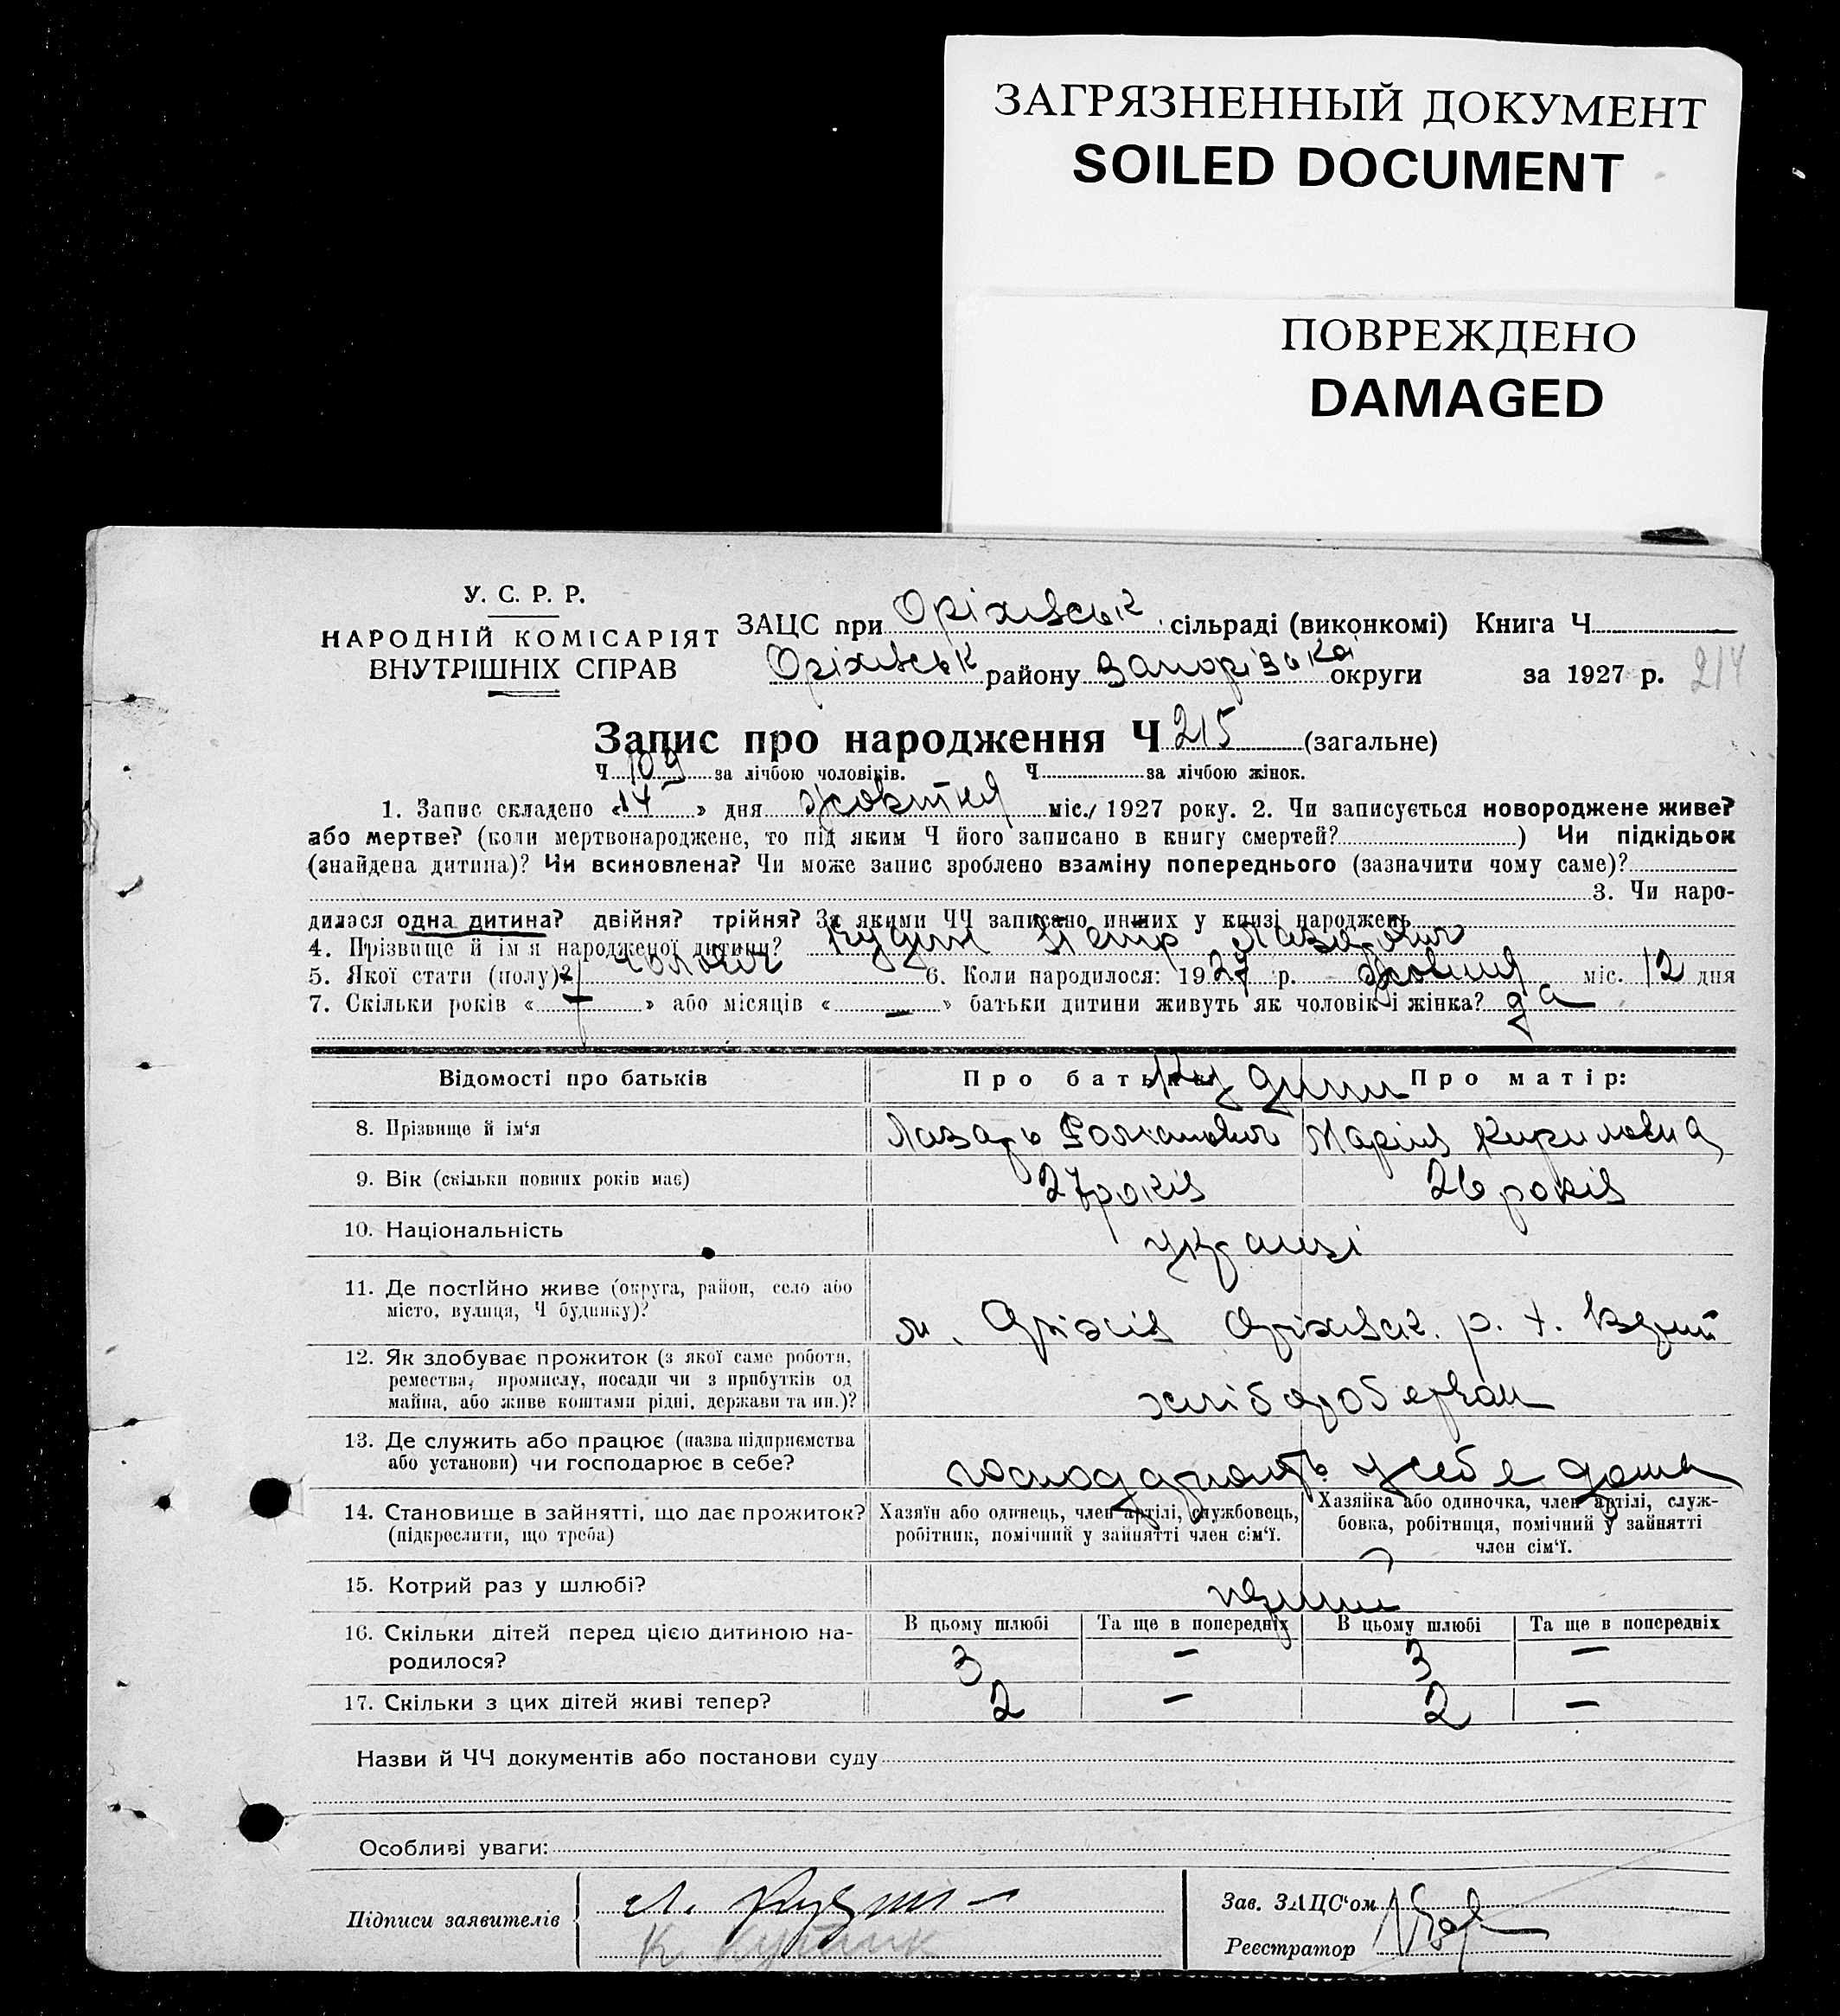 ЗАГРЯЗНЕННЫЙ ДОКУМЕНТ
SOILED DOCUMENT
ПОВРЕЖДЕНО
DAMAGED
У. С. Р. Р.
НАРОДНІЙ КОМІСАРІЯТ
ВНУТРІШНІХ СПРАВ
ЗАЦС при Оріхивськ сільраді (виконкомі) Книга Ч
Оріхивськ району Запорізької округи за 1927 р. 214
Запис про народження Ч 215 (загальне)
Ч 109 за лічбою чоловіків. Ч за лічбою жінок.
1. Запис складено «14» дня жовтня міс. 1927 року. 2. Чи записується новороджене живе?
або мертве? (коли мертвонароджене, то під яким Ч його записано в книгу смертей? ) Чи підкідьок
(знайдена дитина)? Чи всиновлена? Чи може запис зроблено взаміну попереднього (зазначити чому саме)?
3. Чи наро-
дилася одна дитина? двійня? трійня? За якими ЧЧ записано инших у книзі народжень
4. Прізвище й ім'я народженої дитини? Кудин Петр Лазарович
5. Якої стати (полу)? чоловіч 6. Коли народилося: 1927 р. Жовтня міс. 12 дня
7. Скільки років « — » або місяців « — » батьки дитини живуть як чоловік і жінка? да
Відомості про батьків Про батька: Про матір:
Кудини
8. Прізвище й ім'я Лазарь Романович Марія Кириловна
9. Вік (скільки повних років має) 27 років 26 років
10. Національність українці
11. Де постійно живе (округа, район, село або
місто, вулиця, Ч будинку)?
м. Оріхів Оріхивськ. р.
12. Як здобуває прожиток (з якої саме роботи,
ремества, промислу, посади чи з прибутків од
майна, або живе коштами рідні, держави та ин.)?
хлібороб
13. Де служить або працює (назва підприємства
або установи) чи господарює в себе?
господарюють у себе дома
14. Становище в зайнятті, що дає прожиток?
(підкреслити, що треба)
Хазяїн або одинець, член артілі, службовець,
робітник, помічний у зайнятті член сім'ї.
Хазяйка або одиночка, член артілі, служ-
бовка, робітниця, помічний у зайнятті
член сім'ї.
15. Котрий раз у шлюбі? первий
16. Скільки дітей перед цією дитиною на-
родилося?
В цьому шлюбі Та ще в попередніх В цьому шлюбі Та ще в попередніх
3 — 3 —
17. Скільки з цих дітей живі тепер? 2 — 2 —
Назви й ЧЧ документів або постанови суду
Особливі уваги:
Підписи заявителів
Л. Кудин
Зав. ЗАЦС'ом
Реєстратор